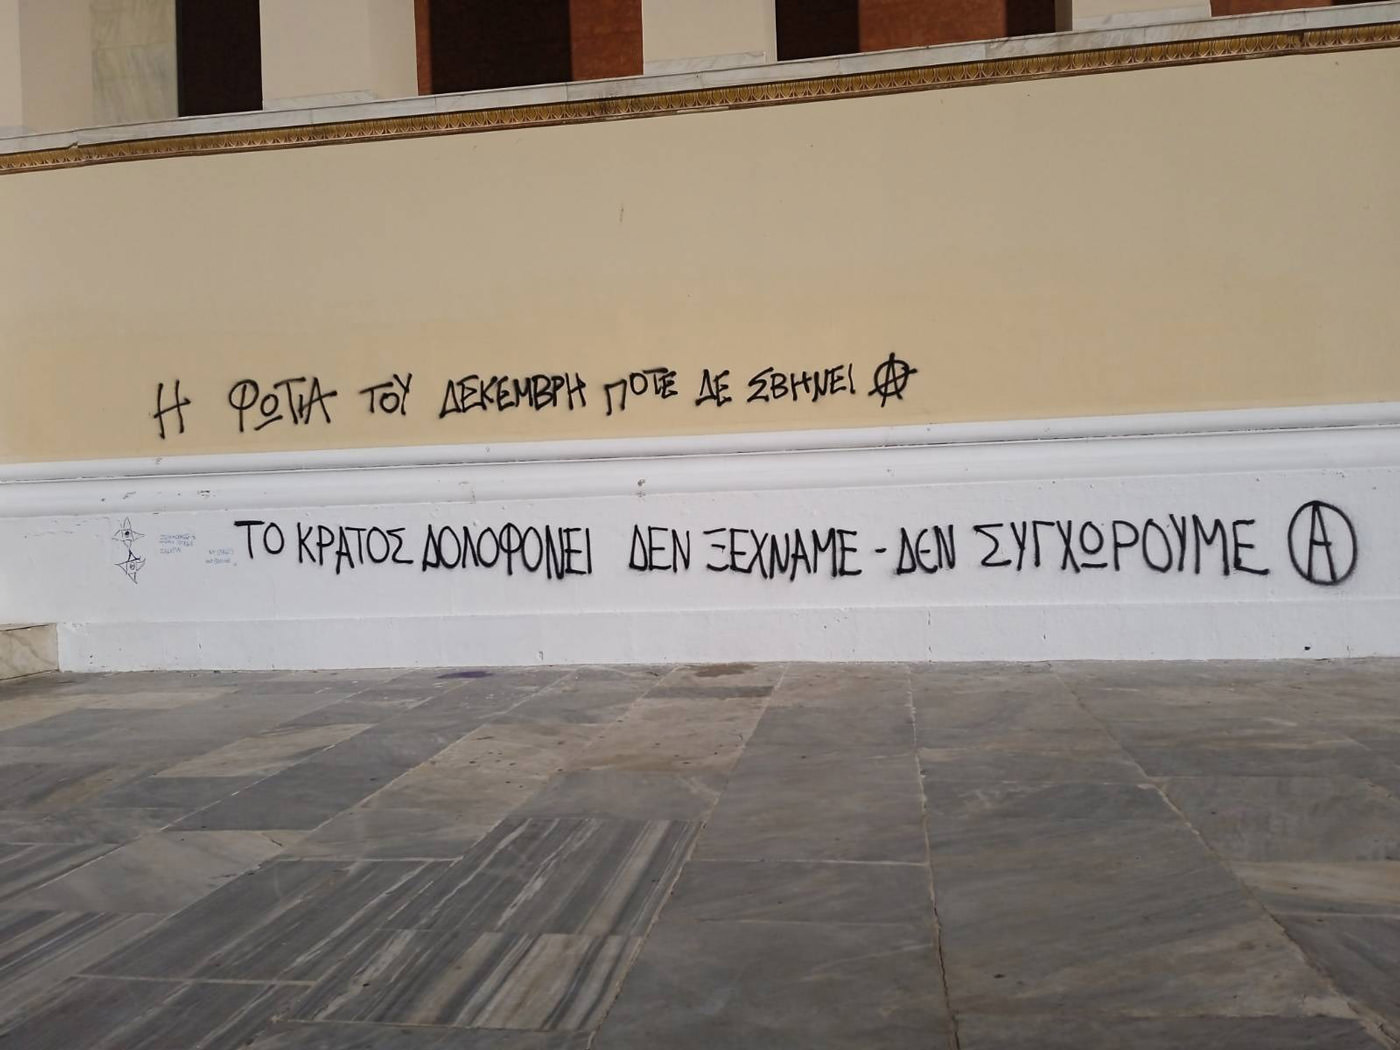 Η ΦΩΤΙΑ ΤΟΥ ΔΕΚΕΜΒΡΗ ΠΟΤΕ ΔΕ ΣΒΗΝΕΙ Ⓐ
ΤΟ ΚΡΑΤΟΣ ΔΟΛΟΦΟΝΕΙ ΔΕΝ ΞΕΧΝΑΜΕ - ΔΕΝ ΣΥΓΧΩΡΟΥΜΕ Ⓐ